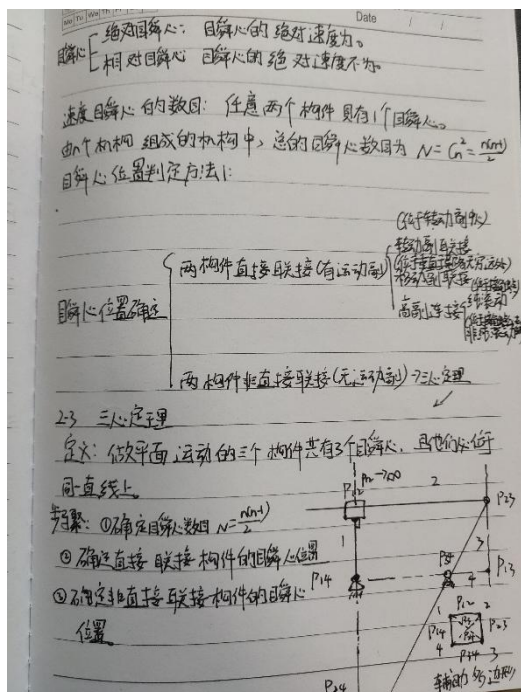 Date
绝对瞬心：瞬心的绝对速度为0
瞬心
相对瞬心 瞬心的绝对速度不为0
速度瞬心的数目：任意两个构件具有1个瞬心。
由n个机构组成的机构中，总的瞬心数目为 N = Cn² = n(n-1)/2
瞬心位置判定方法1:
(位于转动副中心)
转动副联接
两构件直接联接(有运动副)
移动副联接
高副连接
瞬心位置确定
两构件非直接联接(无运动副)→三心定理
2-3 三心定理
定义：做平面运动的三个构件共有3个瞬心，且他们必位于
同一直线上。
步骤：①确定瞬心数目 N = n(n-1)/2
②确定直接联接构件的瞬心位置
③确定非直接联接构件的瞬心
位置
P12→∞
P12
2
P23
1
3
P14
4
P13
1
P12
2
P14
P23
4
P34
3
P24
辅助多边形